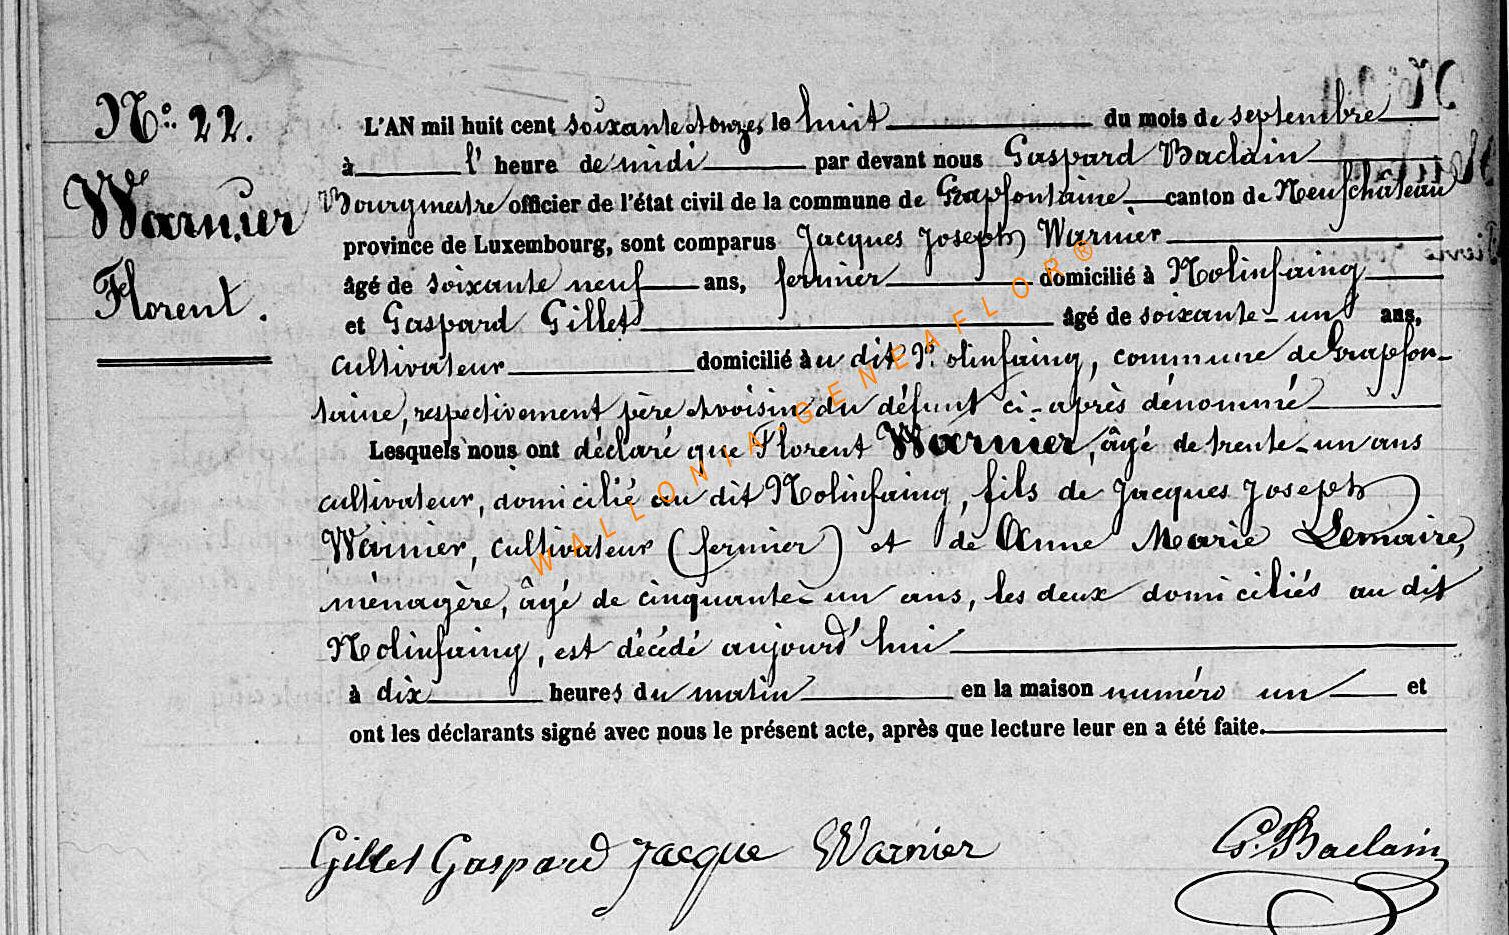 N.° 22.
Warnier
Florent.
L'AN mil huit cent soixante et onze, le huit du mois de septembre
à l' heure de midi par devant nous Gaspard Baclain
Bourgmestre officier de l'état civil de la commune de Grapfontaine canton de Neufchâteau
province de Luxembourg, sont comparus Jacques Joseph Warnier
âgé de soixante neuf ans, fermier domicilié à Nolinfaing
et Gaspard Gillet âgé de soixante-un ans,
cultivateur domicilié au dit Nolinfaing, commune de Grapfon-
taine, respectivement père et voisin du défunt ci-après dénommé
Lesquels nous ont déclaré que Florent Warnier, âgé de trente-un ans
cultivateur, domicilié au dit Nolinfaing, fils de Jacques Joseph
Warnier, cultivateur (fermier) et de Anne Marie Lemaire,
ménagère, âgé de cinquante-un ans, les deux domiciliés au dit
Nolinfaing, est décédé aujourd'hui
à dix heures du matin en la maison numéro un et
ont les déclarants signé avec nous le présent acte, après que lecture leur en a été faite.
Gillet Gaspard Jacque Warnier G. Baclain
WALLONIA-GENEAFLOR®